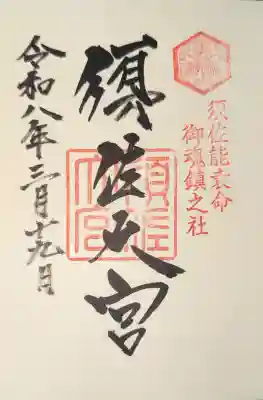 須佐能袁命
御魂鎮之社
須佐大宮
令和八年三月廿九日